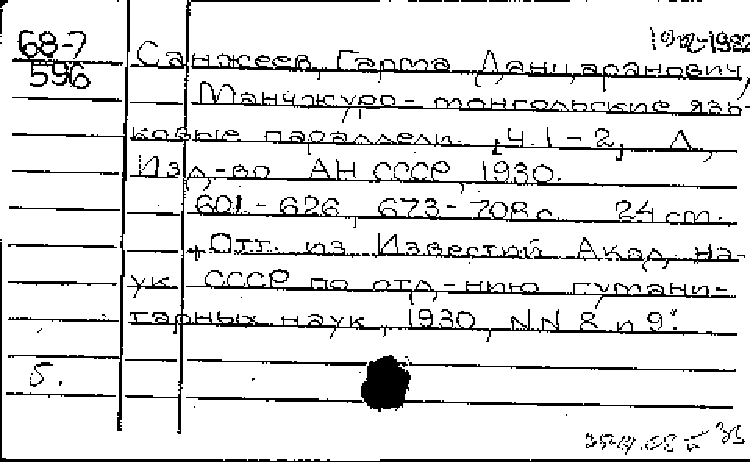 68-7
596
Санжеев, Гарма Данцаранович,
Манчжуро-монгольские язы-
ковые параллели. ,Ч. 1-2, Л.,
Изд-во АН СССР, 1930.
601-626, 673-708 с. 24 cm.
"Отт. из Известий Акад. на-
ук СССР по отд-нию гумани-
тарных наук, 1930, NN 8 и 9".
5.